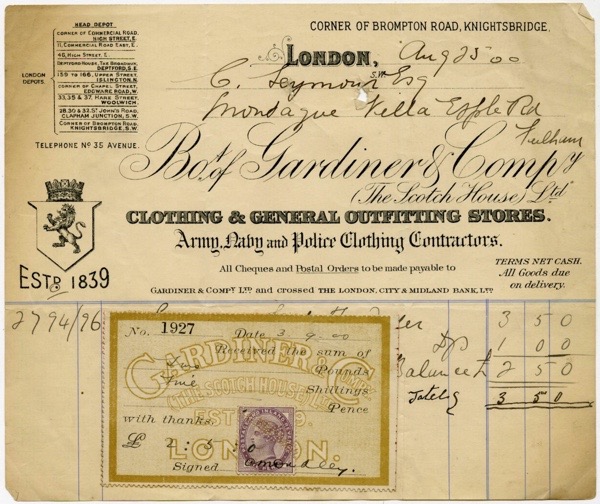 HEAD DEPOT
CORNER OF COMMERCIAL ROAD,
HIGH STREET, E.
11, COMMERCIAL ROAD EAST, E.
46, HIGH STREET, E.
DEPTFORD HOUSE, THE BROADWAY,
DEPTFORD, S.E.
LONDON
DEPOTS.
159 TO 166, UPPER STREET,
ISLINGTON, N.
CORNER OF CHAPEL STREET,
EDGWARE ROAD, W.
33, 35 & 37, HARE STREET,
WOOLWICH.
28, 30 & 32, ST JOHN'S ROAD,
CLAPHAM JUNCTION, S.W.
CORNER OF BROMPTON ROAD,
KNIGHTSBRIDGE, S.W.
TELEPHONE No. 35 AVENUE.
CORNER OF BROMPTON ROAD, KNIGHTSBRIDGE.
LONDON, S.W. Aug 25 00
C. Seymour Esq
Mondague Villa Epple Rd
Fulham
Bot. of Gardiner & Compy
(The Scotch House) Ltd
CLOTHING & GENERAL OUTFITTING STORES.
Army, Navy and Police Clothing Contractors.
ESTD. 1839
All Cheques and Postal Orders to be made payable to
GARDINER & COMPY LTD and crossed THE LONDON, CITY & MIDLAND BANK, LTD
TERMS NET CASH.
All Goods due
on delivery.
2794/96
3 5 0
1 0 0
Balance £ 2 5 0
3 5 0
No. 1927
Date 3. 9. 00
GARDINER & COY
Received the sum of
Two Pounds
(THE SCOTCH HOUSE) LTD
Five Shillings
Pence
with thanks.
£ 2 : 5 : 0
LONDON.
Signed